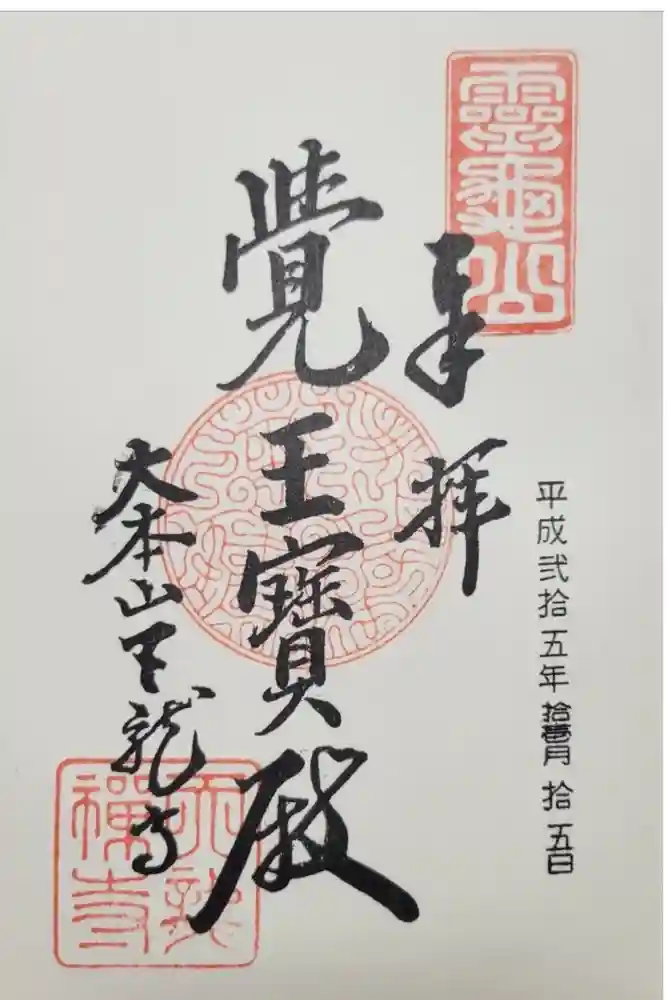 靈龜山
奉拝
平成弐拾五年拾壱月拾五日
覺王寶殿
大本山天龍寺
天龍
禅寺